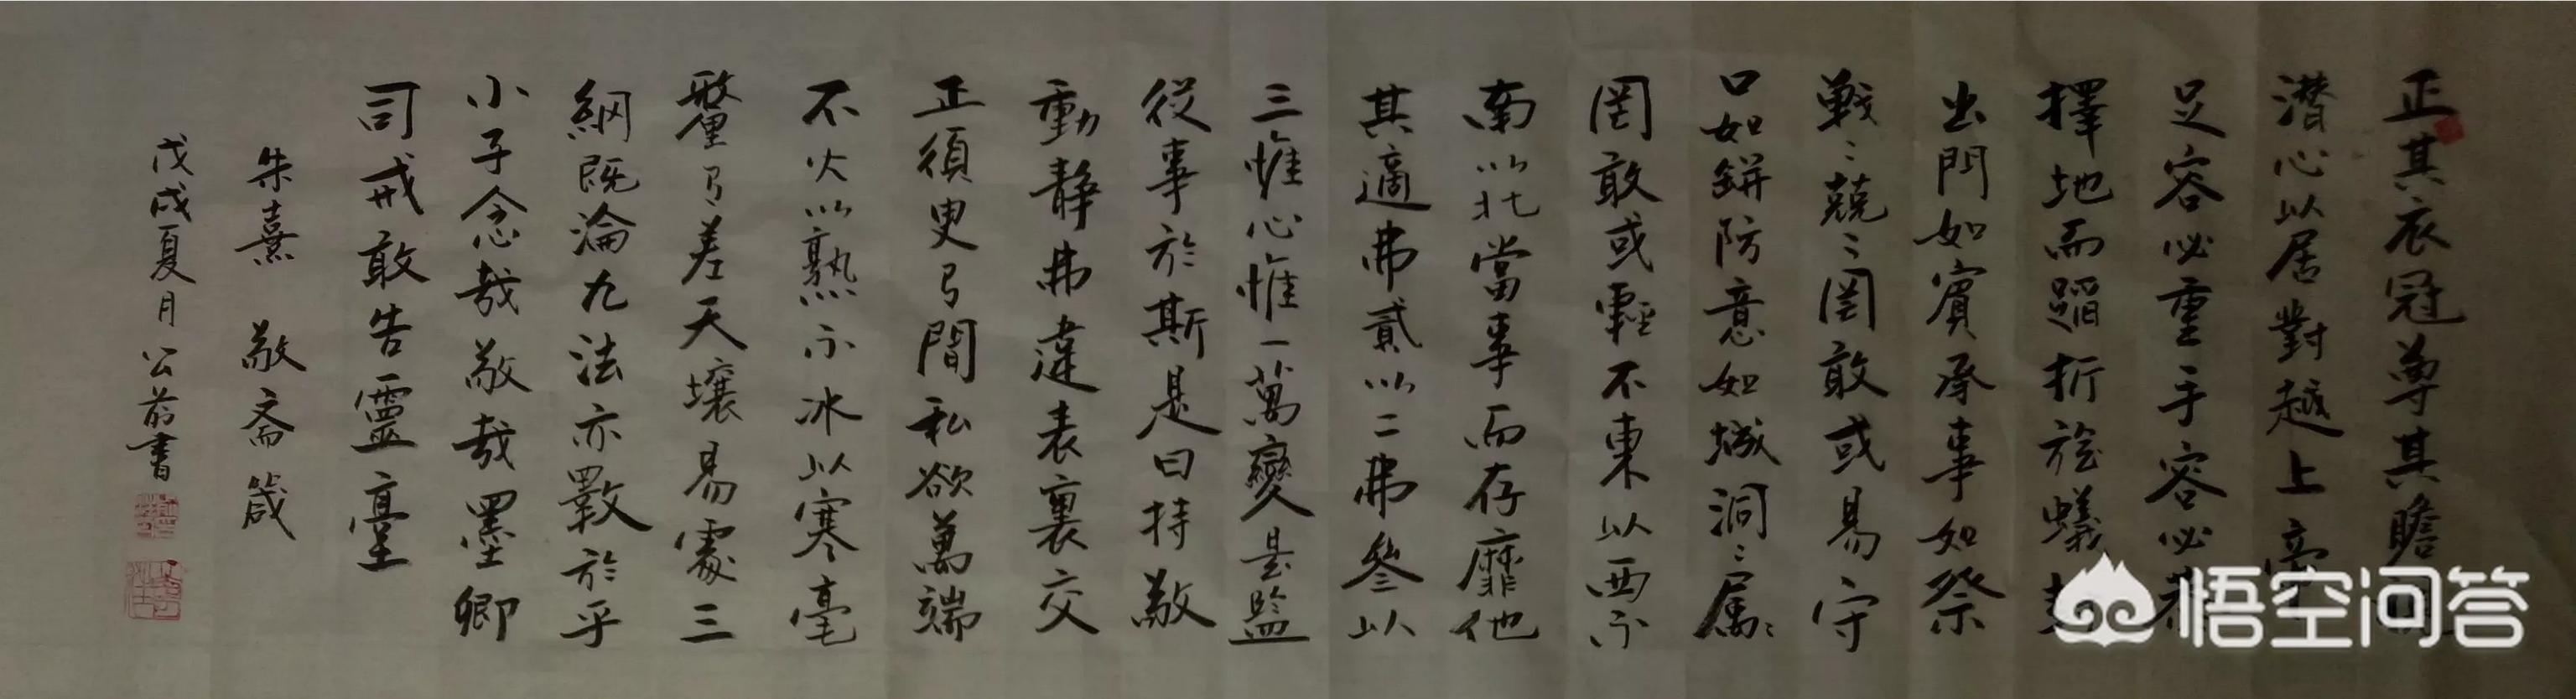 正其衣冠尊其瞻
潜心以居對越上帝
足容必重手容必恭
擇地而蹈折旋蟻封
出門如賓承事如祭
戰〻兢〻罔敢或易守
口如缾防意如城洞〻属〻
罔敢或輕不東以西不
南以北當事而存靡他
其適弗貳以二弗參以
三惟心惟一萬變是監
從事於斯是曰持敬
動静弗違表裏交
正須臾有間私欲萬端
不火以熱不冰以寒毫
釐有差天壤易處三
綱既淪九法亦斁於乎
小子念哉敬哉墨卿
司戒敢告靈臺
朱熹 敬斋箴
戊戌夏月 公前書
悟空问答